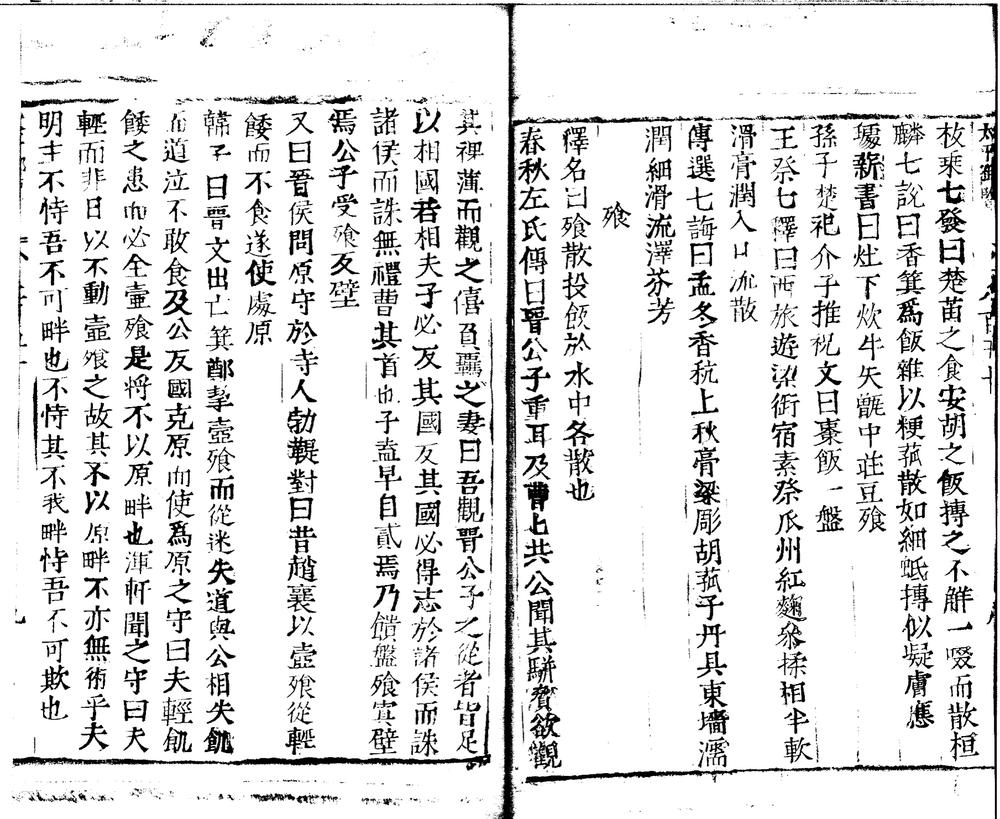 枚乘七發曰楚苗之食安胡之飯摶之不解一啜而散桓
麟七說曰香箕爲飯雜以粳菰散如細蚳摶似凝膚應
璩薪書曰灶下炊牛矢甑中莊豆飱
孫子楚祀介子推祝文曰棗飯一盤
王粲七釋曰西旅遊梁銜宿素粲瓜州紅麹叅揉相半軟
滑膏潤入口流散
傅選七誨曰孟冬香秔上秋膏粱彫胡菰子丹具東墻濡
潤細滑流澤芬芳
飱
釋名曰飱散投飯於水中各散也
春秋左氏傳曰晉公子重耳及曹上共公聞其駢脅欲觀
其裸薄而觀之僖負羈之妻曰吾觀晉公子之從者皆足
以相國若相夫子必反其國反其國必得志於諸侯而誅
諸侯而誅無禮曹其首也子盍早自貳焉乃饋盤飱寘璧
焉公子受飱反璧
又曰晉侯問原守於寺人勃鞮對曰昔趙衰以壺飱從輕
餧而不食遂使處原
韓子曰晉文出亡箕鄭挈壺飱而從迷失道與公相失飢
而道泣不敢食及公反國克原而使爲原之守曰夫輕飢
餧之患而必全壷飱是將不以原畔也渾軒聞之守曰夫
輕而非日以不動壺飱之故其不以原畔不亦無術乎夫
明主不恃吾不可畔也不恃其不我畔恃吾不可欺也